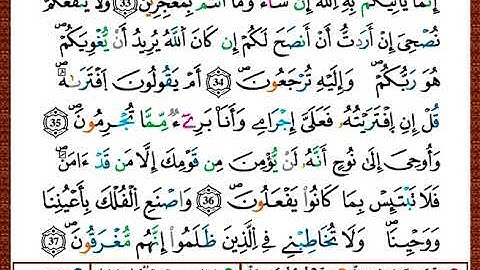 إِنَّمَا يَأْتِيكُم بِهِ ٱللَّهُ إِن شَآءَ وَمَآ أَنتُم بِمُعْجِزِينَ ٣٣ وَلَا يَنفَعُكُمْ
نُصْحِىٓ إِنْ أَرَدتُّ أَنْ أَنصَحَ لَكُمْ إِن كَانَ ٱللَّهُ يُرِيدُ أَن يُغْوِيَكُمْ
هُوَ رَبُّكُمْ وَإِلَيْهِ تُرْجَعُونَ ٣٤ أَمْ يَقُولُونَ ٱفْتَرَىٰهُ
قُلْ إِنِ ٱفْتَرَيْتُهُۥ فَعَلَىَّ إِجْرَامِى وَأَنَا۠ بَرِىٓءٌ مِّمَّا تُجْرِمُونَ ٣٥
وَأُوحِىَ إِلَىٰ نُوحٍ أَنَّهُۥ لَن يُؤْمِنَ مِن قَوْمِكَ إِلَّا مَن قَدْ ءَامَنَ
فَلَا تَبْتَئِسْ بِمَا كَانُوا۟ يَفْعَلُونَ ٣٦ وَٱصْنَعِ ٱلْفُلْكَ بِأَعْيُنِنَا
وَوَحْيِنَا وَلَا تُخَٰطِبْنِى فِى ٱلَّذِينَ ظَلَمُوٓا۟ إِنَّهُم مُّغْرَقُونَ ٣٧